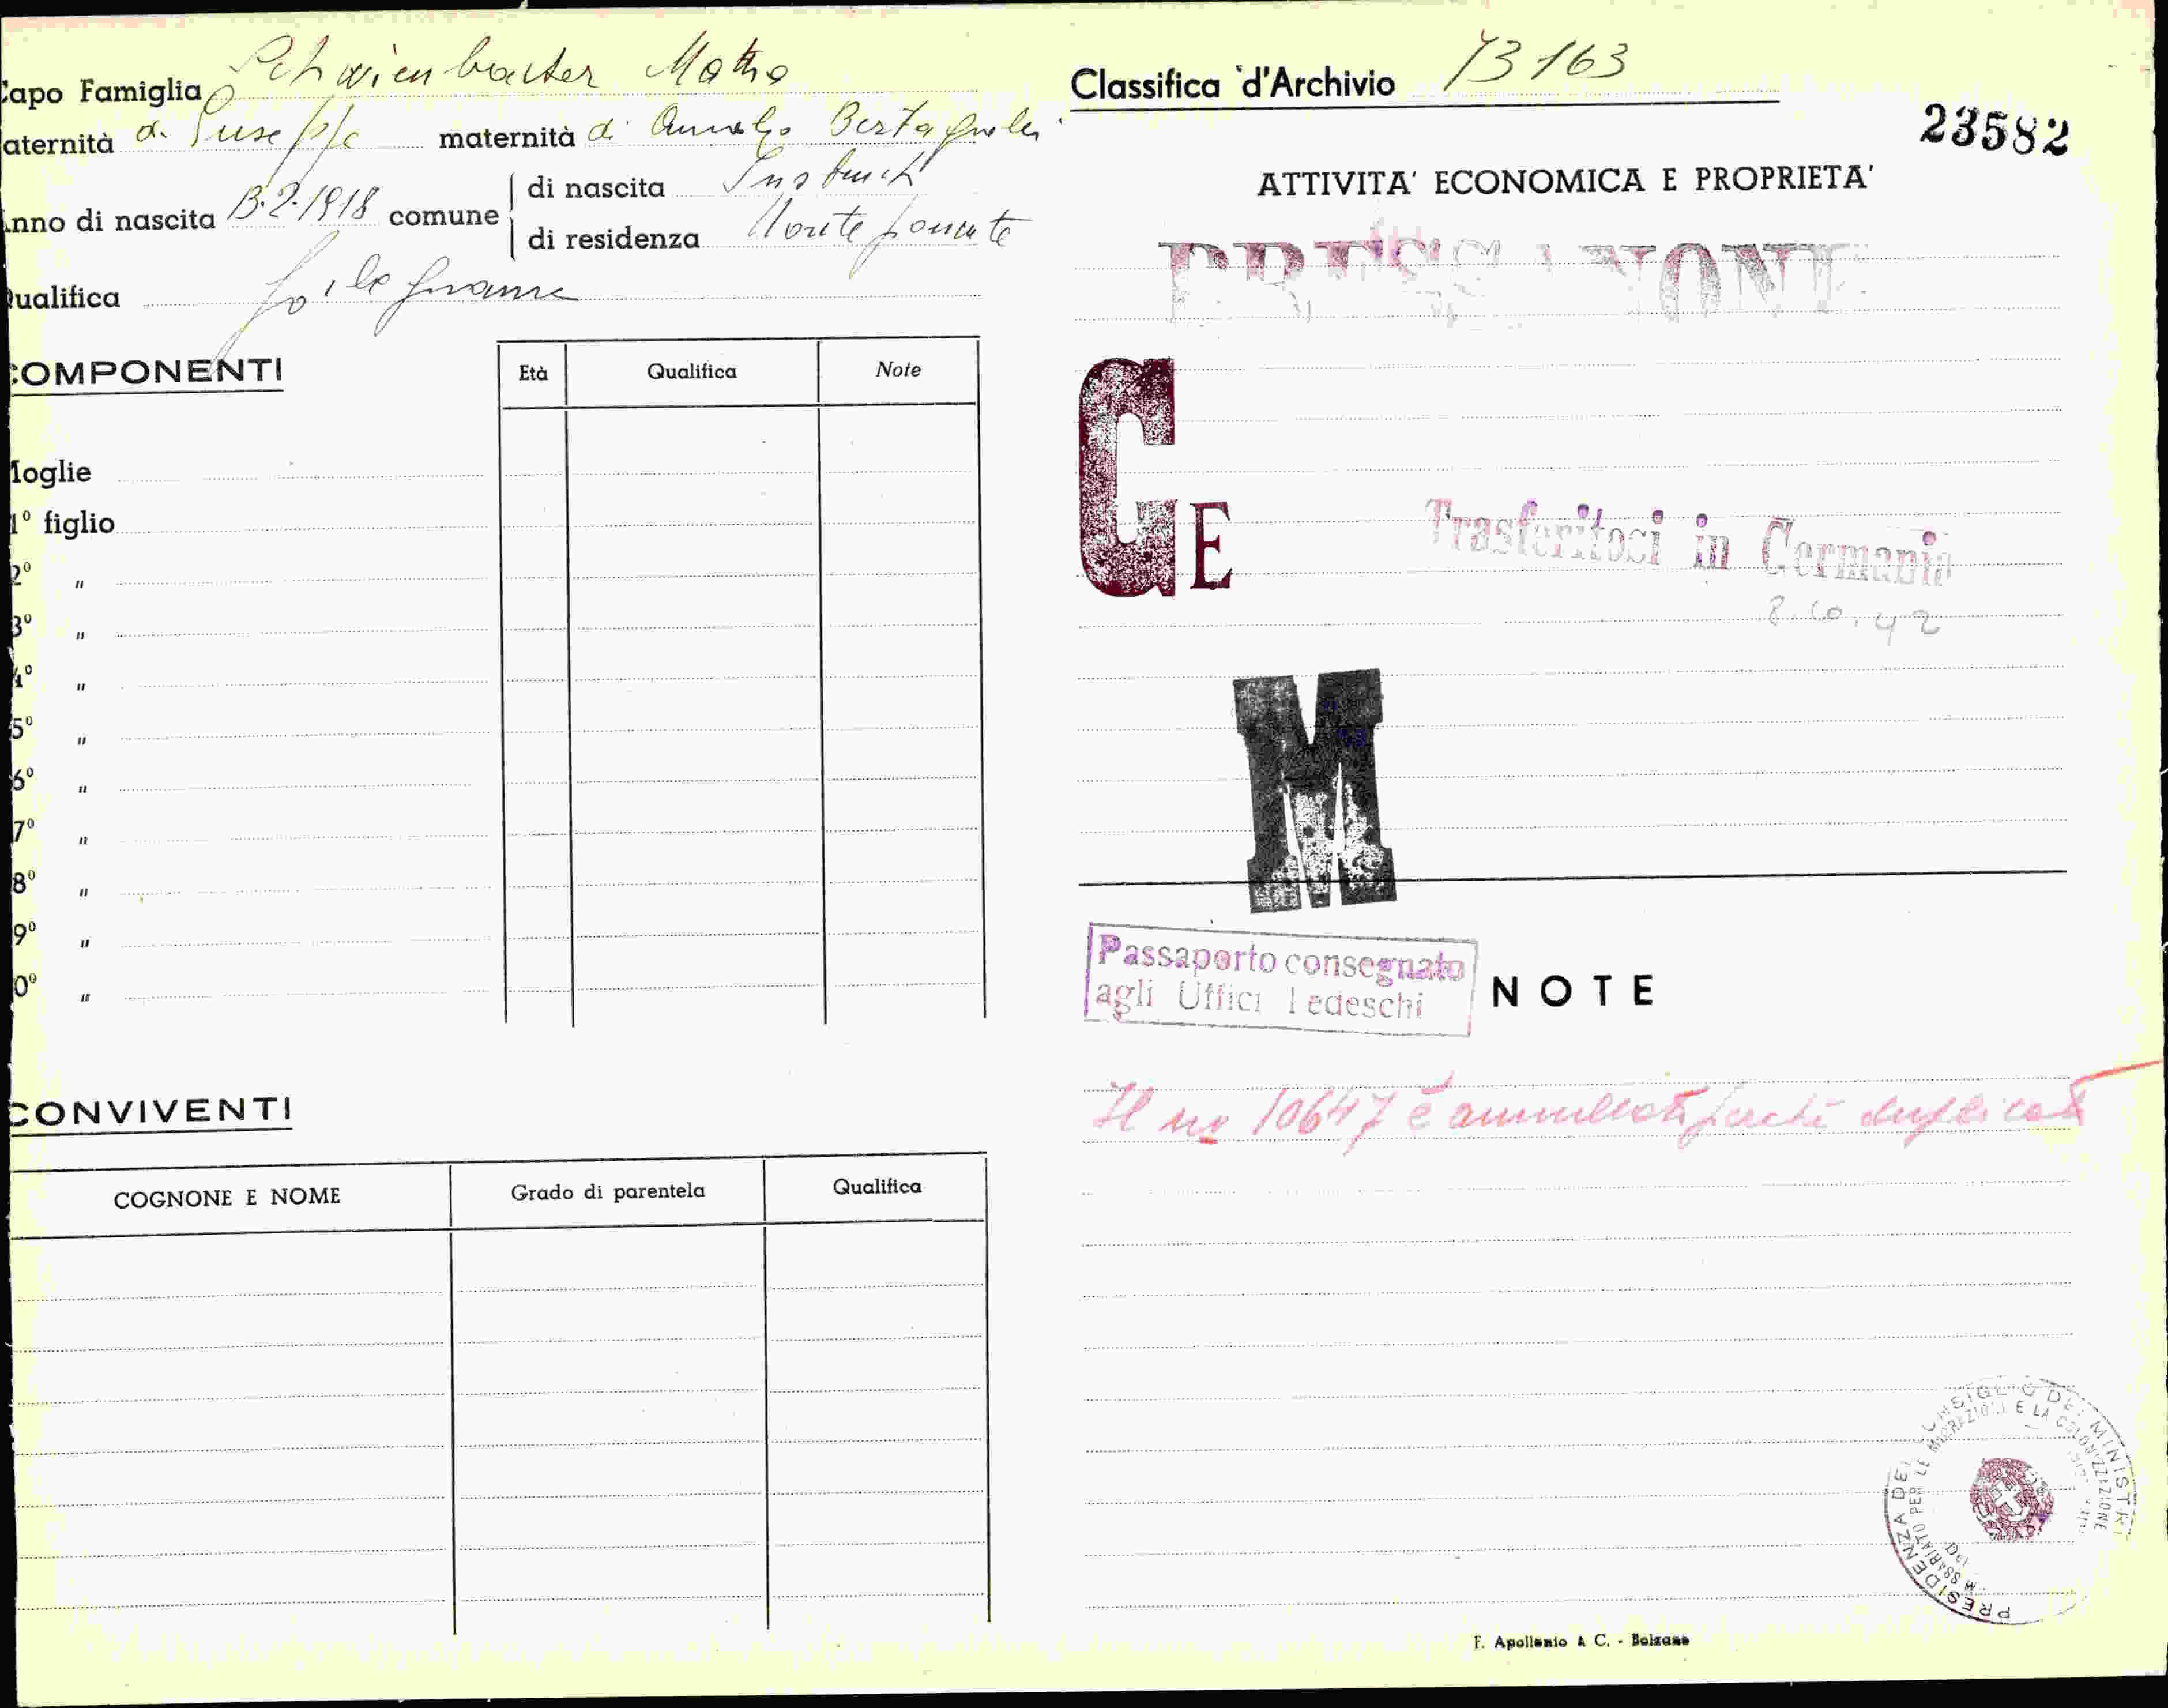 Capo Famiglia
aternità di Giuseppe maternità di
nno di nascita 13.2.1918 comune
di nascita Insbruch
di residenza Monteponente
ualifica
COMPONENTI
Età Qualifica Note
Moglie
1º figlio
2º "
3º "
4º "
5º "
6º "
7º "
8º "
9º "
0º "
CONVIVENTI
COGNONE E NOME Grado di parentela Qualifica
Classifica d'Archivio 73163
23582
ATTIVITA' ECONOMICA E PROPRIETA'
GE
Trasferitosi in Germania
8.10.42
M
Passaporto consegnato
agli Uffici Tedeschi
NOTE
Il no 10647 è annullato perchè duplicato
PRESIDENZA DEL CONSIGLIO DEI MINISTRI
PER LE MIGRAZIONI E LA COLONIZZAZIONE
F. Apollonio & C. - Bolzano